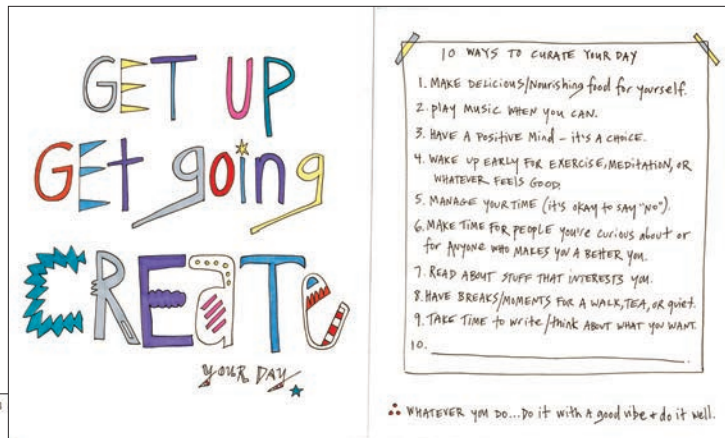 GET UP
GEt going
CREaTe
YOUR DAY
10 WAYS TO CURATE YOUR DAY
1. MAKE DELICIOUS/Nourishing food for yourself.
2. play MUSIC WHEN you CAN.
3. HAVE A Positive Mind – it's A CHOICE.
4. WAKE UP EARLY FOR EXERCISE, MEDITATION, OR
WHATEVER FEELS GOOD.
5. MANAGE YOUR TIME (it's okay to say "NO").
6. MAKE TIME FOR PEOPLE you're curious about or
for Anyone WHO MAKES YOU A BETTER YOU.
7. READ ABOUT STUFF THAT INTERESTS YOU.
8. HAVE BREAKS/MOMENTS FOR A WALK, TEA, OR quiet.
9. TAKE TIME to write/think ABOUT WHAT YOU WANT.
10.
WHATEVER YOU DO... Do it with A good vibe + do it well.